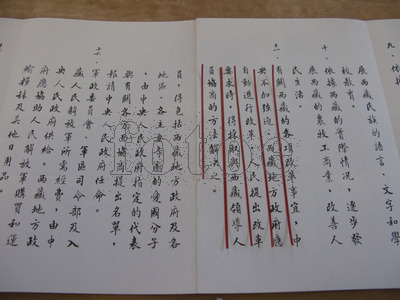 九、依
展西藏民族的語言、文字和學
校教育。
十、依據西藏的實際情況,逐步發
展西藏的農牧工商業,改善人
民生活。
十一、有關西藏的各項改革事宜,中
央不加強迫。西藏地方政府應
自動進行改革,人民提出改革
要求時,得採取與西藏領導人
員協商的方法解決之。
員,得包括西藏地方政府及各
地區、各主要寺廟的愛國分子
,由中央人民政府指定的代表
與有關各方面協商提出名單,
報請中央人民政府任命。
十、軍政委員會、軍區司令部及入
藏人民解放軍所需經費,由中
央人民政府供給。西藏地方政
府應協助人民解放軍購買和運
輸糧秣及其他日用品。